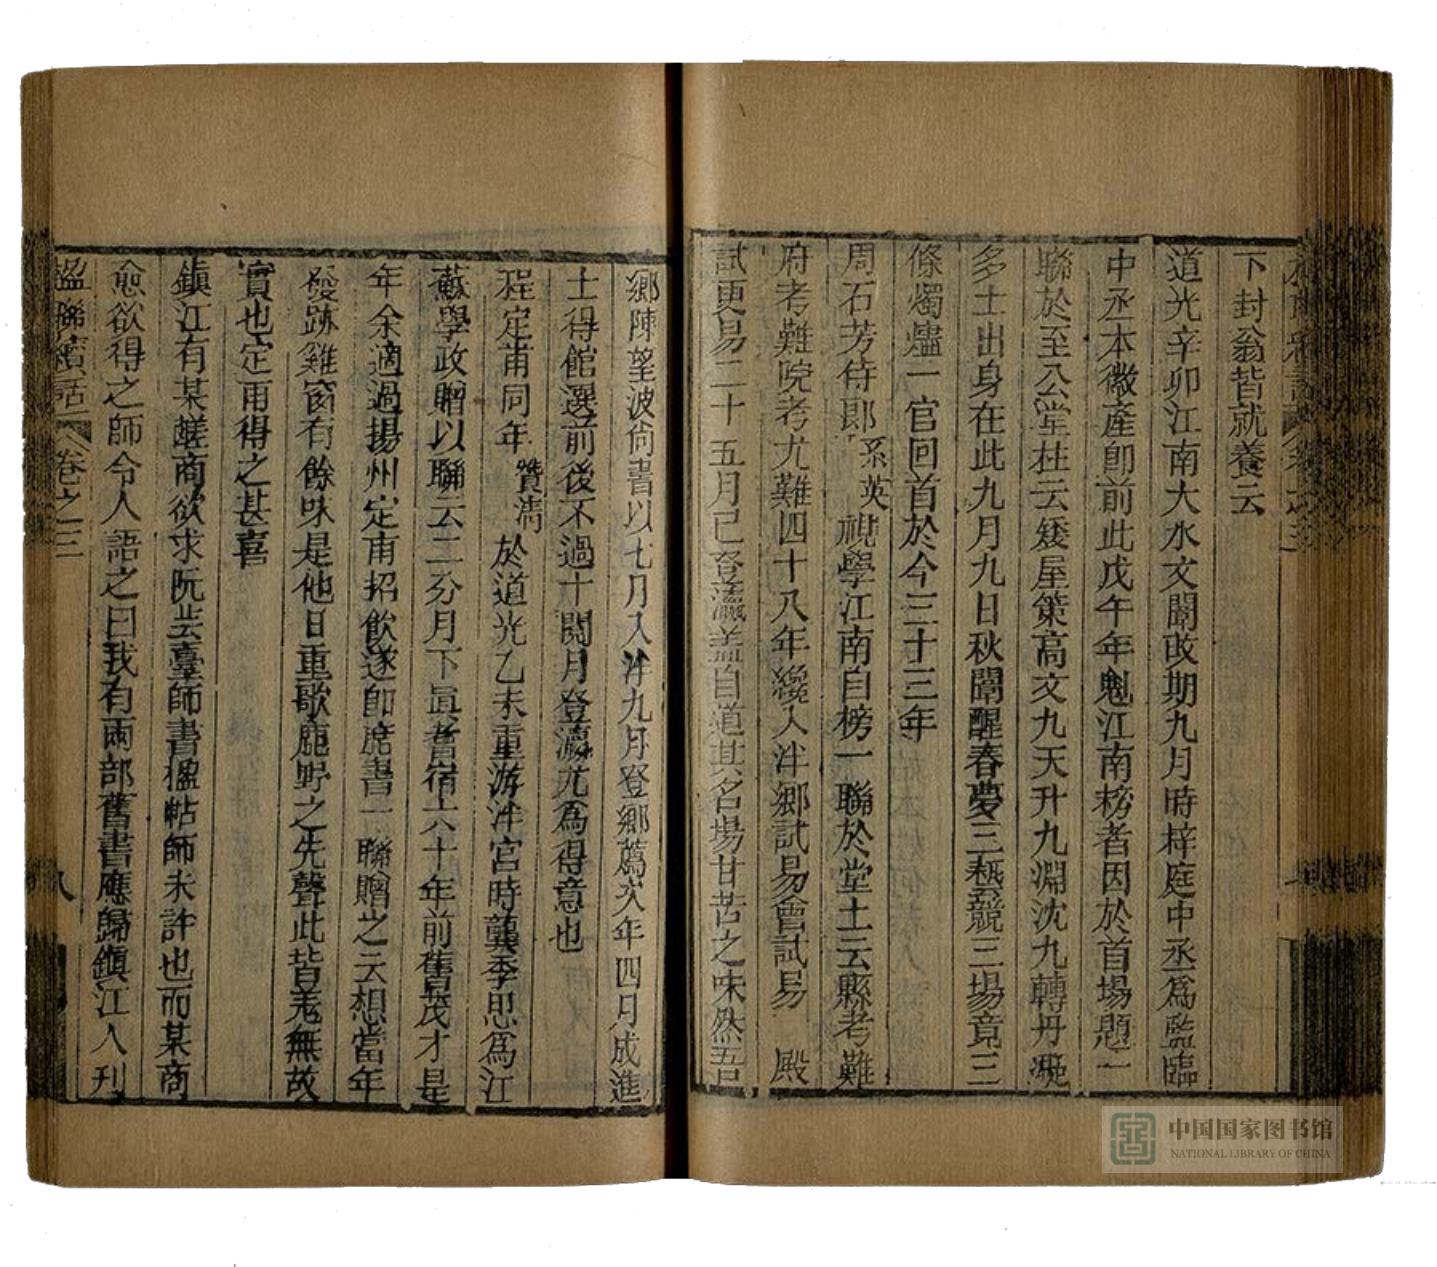 下封翁皆就養云
道光辛卯江南大水文闈改期九月時梓庭中丞為監臨
中丞本徽產卽前此戊午年魁江南榜者因於首場題一
聯於至公堂柱云矮屋策高文九天升九淵沈九轉丹成
多士出身在此九月九日秋闈醒春夢三藝競三場竟三
條燭燼一官回首於今三十三年
周石芳侍郎系英視學江南自榜一聯於堂上云縣考難
府考難院考尤難四十八年纔入泮鄉試易會試易 殿
試更易二十五月已登瀛蓋自道其名場甘苦之味然吾
鄉陳望波尚書以七月入泮九月登鄉薦次年四月成進
士得館選前後不過十閱月登瀛尤為得意也
程定甫同年贊清於道光乙未重游泮宮時龔季思為江
蘇學政贈以聯云二分月下眞耆宿六十年前舊茂才是
年余適過揚州定甫招飲遂卽席書一聯贈之云想當年
發跡雞窗有餘味是他日重歌鹿野之先聲此皆羌無故
實也定甫得之甚喜
鎮江有某鹺商欲求阮芸臺師書楹帖師未許也而某商
愈欲得之師令人語之曰我有兩部舊書應歸鎮江人刊
楹聯續話 卷之三 八
中国国家图书馆
NATIONAL LIBRARY OF CHINA